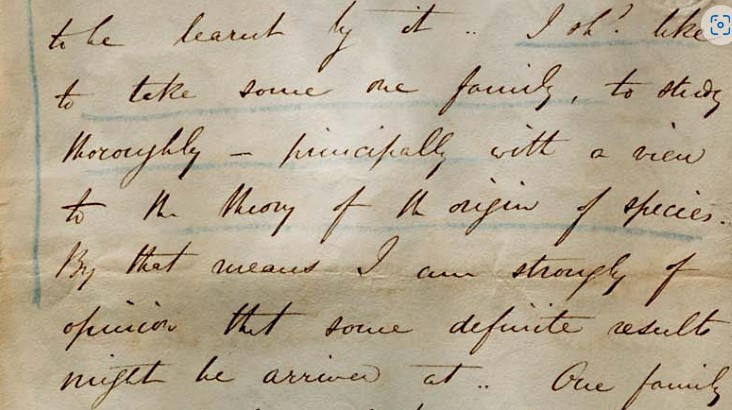 to be learnt by it .. I shd. like
to take some one family, to study
thoroughly – principally with a view
to the theory of the origin of species.
By that means I am strongly of
opinion that some definite results
might be arrived at .. One family